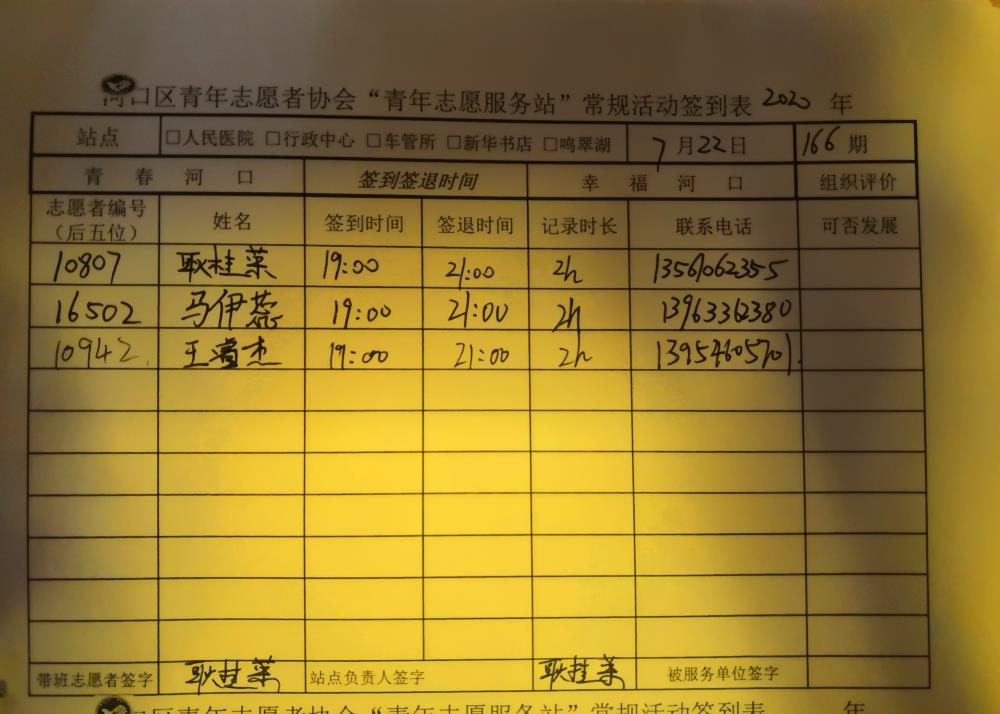 河口区青年志愿者协会“青年志愿服务站”常规活动签到表 2020 年
站点 □人民医院 □行政中心 □车管所 □新华书店 □鸣翠湖 7月22日 166 期
青春河口 签到签退时间 幸福河口 组织评价
志愿者编号（后五位） 姓名 签到时间 签退时间 记录时长 联系电话 可否发展
10807 耿桂菜 19:00 21:00 2h 13561062355
16502 马伊蕊 19:00 21:00 2h 13963362380
10942. 王睿杰 19:00 21:00 2h 13954605701.
带班志愿者签字 耿桂菜 站点负责人签字 耿桂菜 被服务单位签字
口区青年志愿者协会“青年志愿服务站”常规活动签到表 年